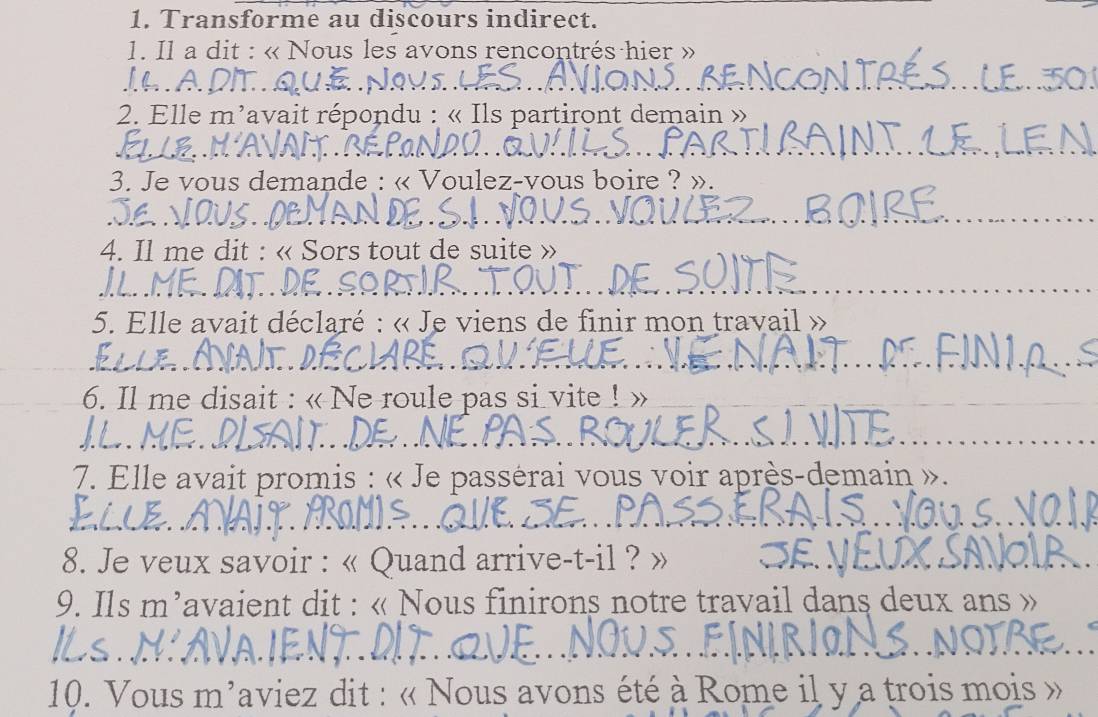 1. Transforme au discours indirect.
1. Il a dit : « Nous les avons rencontrés hier »
IL A DIT QUE NOUS LES AVIONS RENCONTRÉS LE
2. Elle m'avait répondu : « Ils partiront demain »
ELLE M'AVAIT RÉPONDU QU'ILS PARTIRAINT LE LEN
3. Je vous demande : « Voulez-vous boire ? ».
JE VOUS DEMANDE SI VOUS VOULEZ BOIRE
4. Il me dit : « Sors tout de suite »
IL ME DIT DE SORTIR TOUT DE SUITE
5. Elle avait déclaré : « Je viens de finir mon travail »
ELLE AVAIT DÉCLARÉ QU'ELLE VENAIT DE FINIR S
6. Il me disait : « Ne roule pas si vite ! »
IL ME DISAIT DE NE PAS ROULER SI VITE
7. Elle avait promis : « Je passerai vous voir après-demain ».
ELLE AVAIT PROMIS QUE JE PASSERAIS VOUS VOIR
8. Je veux savoir : « Quand arrive-t-il ? » JE VEUX SAVOIR
9. Ils m'avaient dit : « Nous finirons notre travail dans deux ans »
ILS M'AVAIENT DIT QUE NOUS FINIRIONS NOTRE
10. Vous m'aviez dit : « Nous avons été à Rome il y a trois mois »